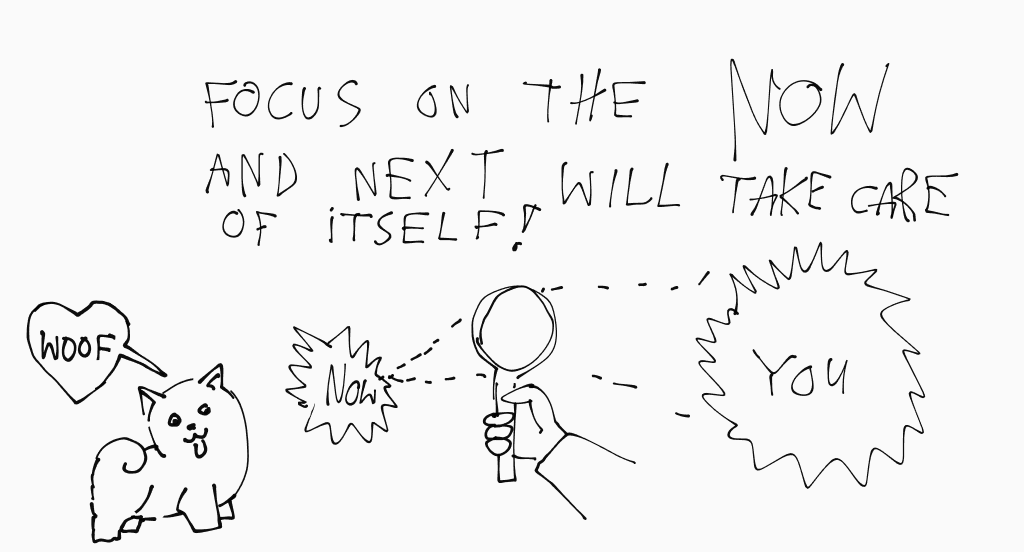 FOCUS ON THE NOW
AND NEXT WILL TAKE CARE
OF ITSELF!
WOOF
NOW
YOU